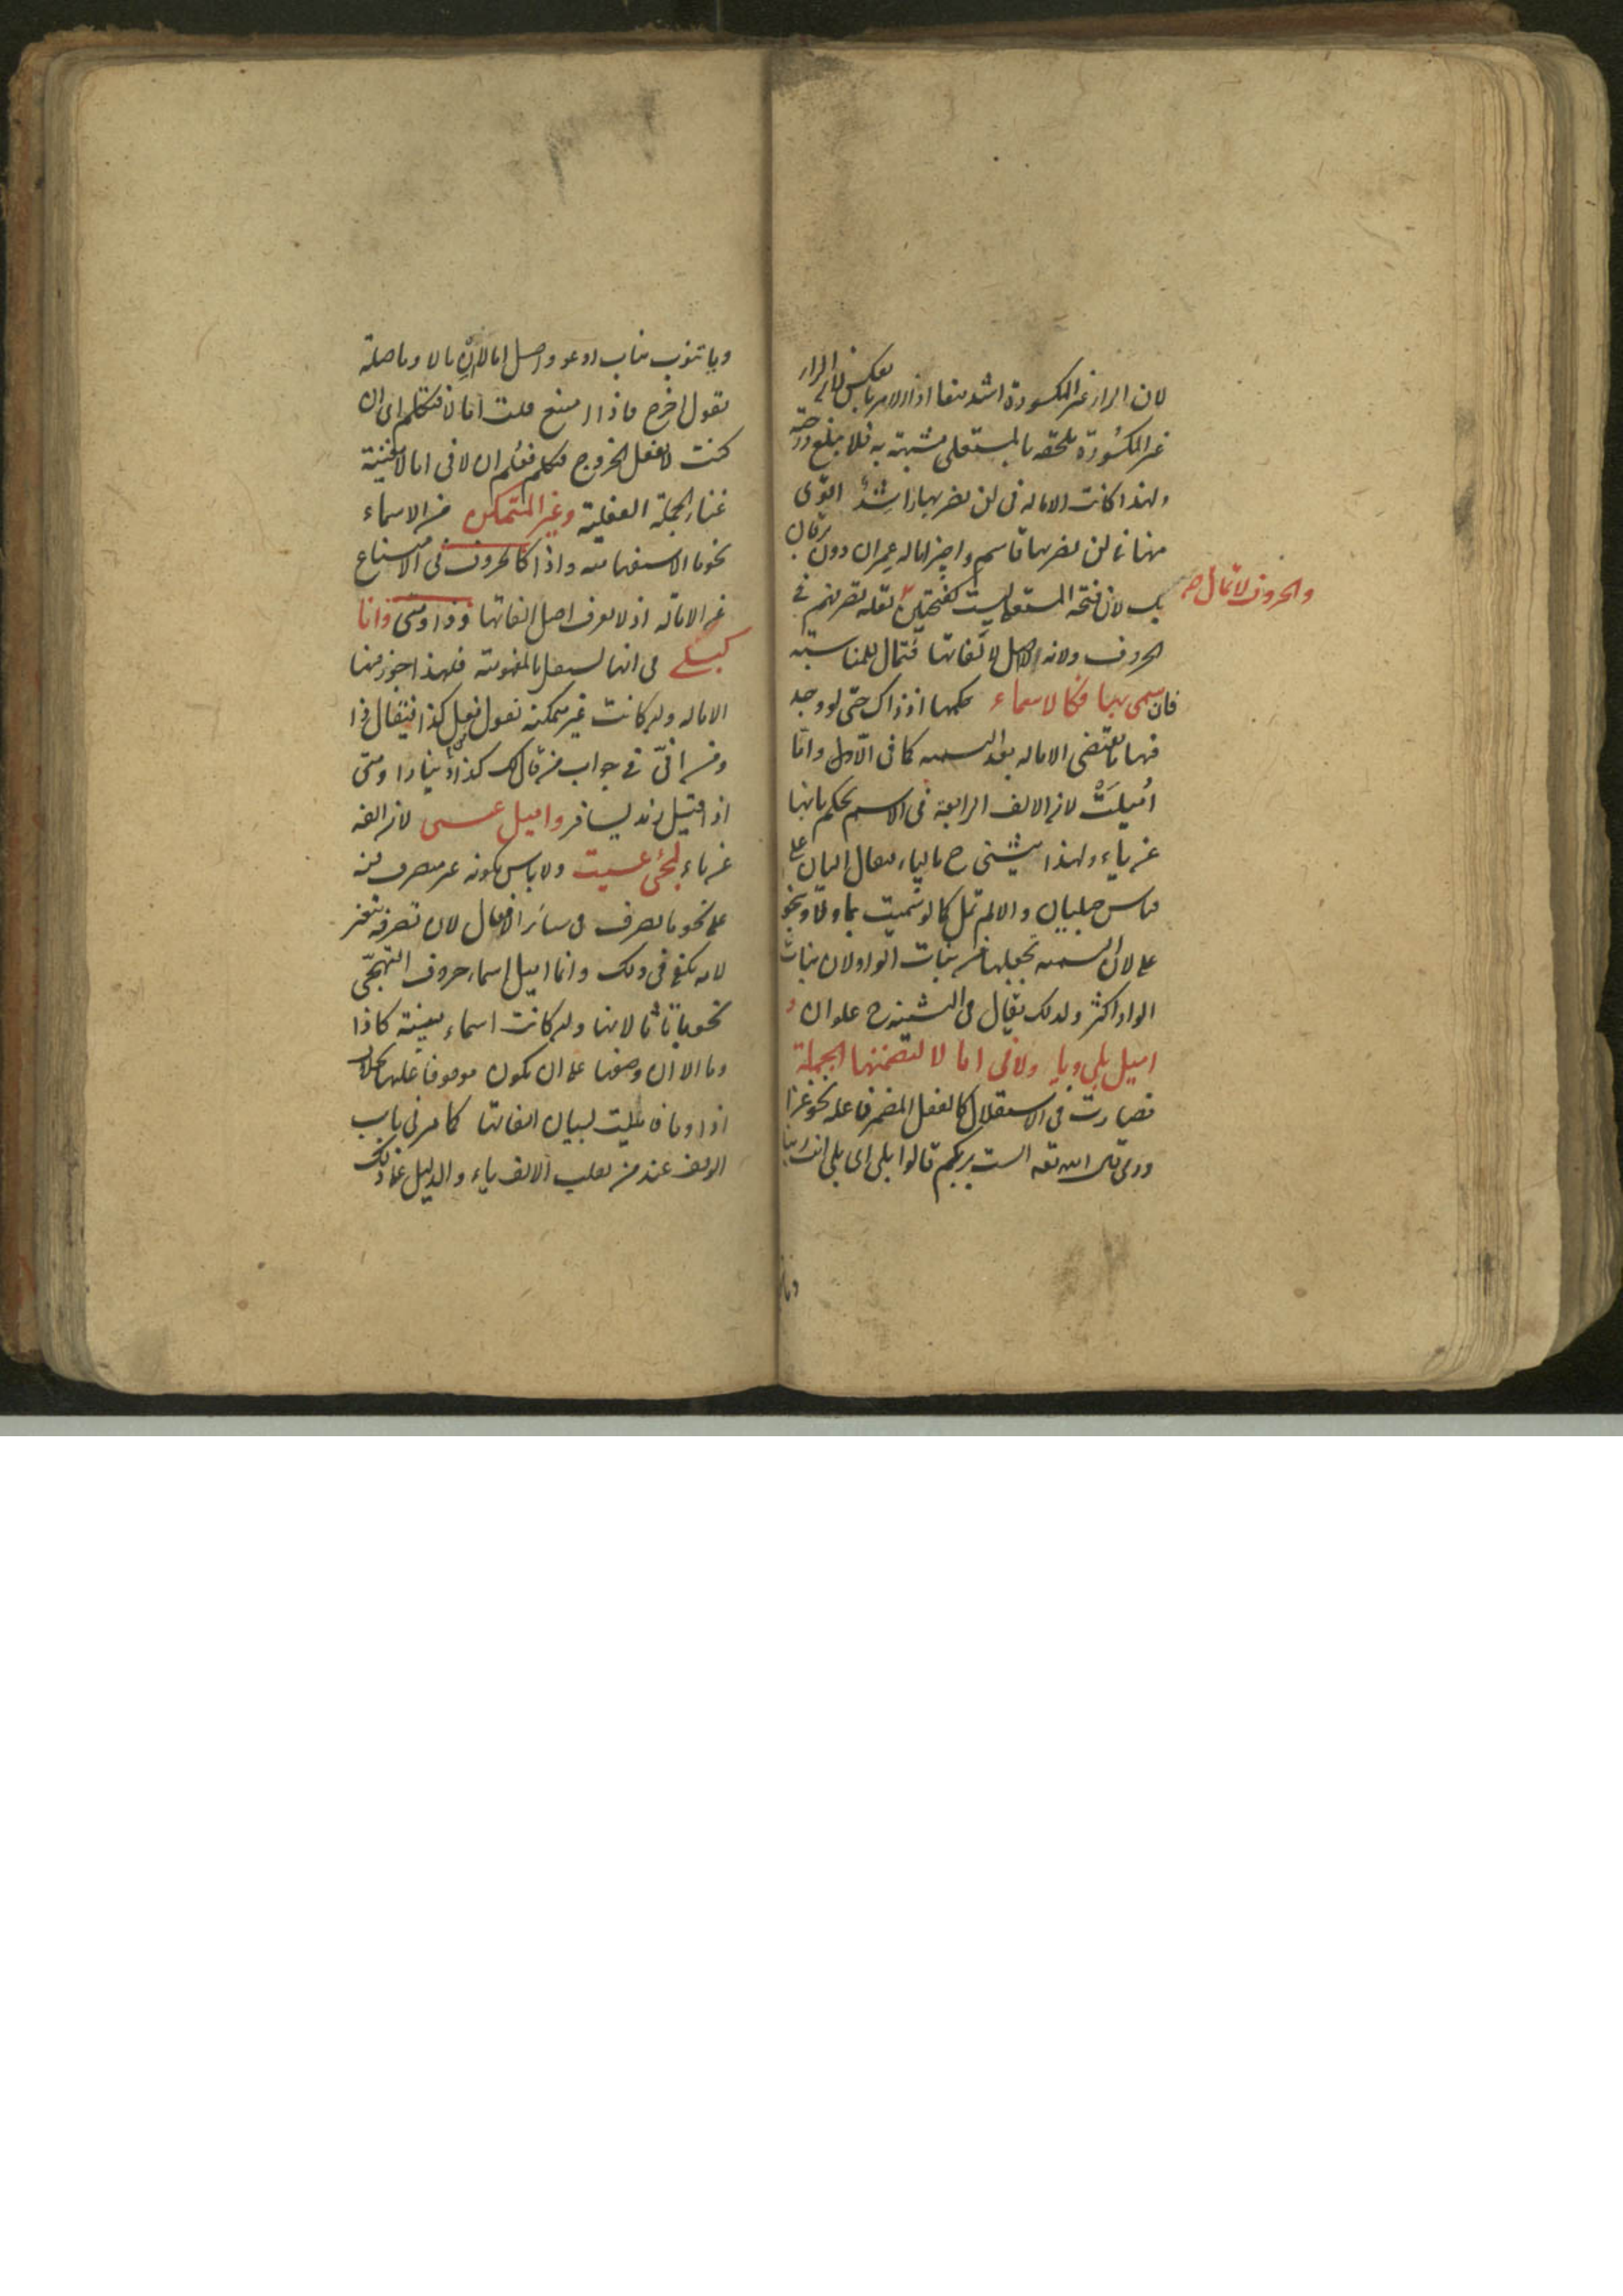 لان الراء غير المكسورة اشد منعا اذ الامر بالعكس لان الراء
غير المكسورة ملحقه بالمستعلى مشبهة به فلا يبلغ درجته
ولهذا كانت الاماله فى لن يضربها راشد اقوى
منها فى لن يضربها قاسم واجيز اماله عمران دون برقان
لان فتحة المستعلى ليست كفتحتين
والحروف لا تمال
لقلة تصرفهم فى
الحروف ولانه لا اصل لالفاتها فتمال للمناسبة
فان سمى بها فكالاسماء حكمها اذ ذاك حتى لو وجد
فيها ما يقتضى الاماله بعد التسميه كما فى الا واما
اميلت لان الالف الرابعة فى الاسم يحكم بانها
عن ياء ولهذا يثنى ح بالياء فيقال اليان على
قياس حبليان والا لم تمل كما لو سميت بما ولا ونحو
على لان التسميه تجعلها من بنات الواو لان بنات
الواو اكثر ولذلك يقال فى التثنيه ح علوان و
اميل بلى ويا ولا فى اما لا لتضمنها الجملة
فصارت فى الاستقلال كالفعل المضمر فاعله نحو غزا
ورمى قال الله تعه الست بربكم قالوا بلى اى بلى انت ربنا
ويا تنوب مناب ادعو واصل اما لا ان لا وما صلة
يقول اخرج فاذا امتنع قلت اما لا فتكلم اى ان
كنت لا تفعل الخروج فتكلم فعلم ان لا فى اما لا مغنية
غناء الجملة الفعلية وغير المتمكن من الاسماء
نحو ما الاستفهامية واذا كالحروف فى الامتناع
عن الامالة اذ لا يعرف اصل الفاتها وذا ومتى وانا
كبلى فى انها تستقل بالمفهومية فلهذا جوز فيها
الاماله وان كانت غير متمكنه تقول من فعل كذا فيقال ذا
ومن انى فى جواب من قال لك كذا دينارا ومتى
اذا قيل زيد يسافر واميل عسى لان الفه
عن ياء لمجئ عسيت ولا باس بكونه غير متصرف فيه
على نحو ما تصرف فى سائر الافعال لان تصرفه
لانه يكفى فى ذلك وانما اميل اسماء حروف التهجى
نحو با تا ثا لانها وان كانت اسماء مبنية كاذا
وما الا ان وضعها على ان يكون موقوفا عليها بخلاف
اذا وما فاميلت لبيان الفاتها كما مر فى باب
الوقف عند من يقلب الالف ياء والدليل على ذلك